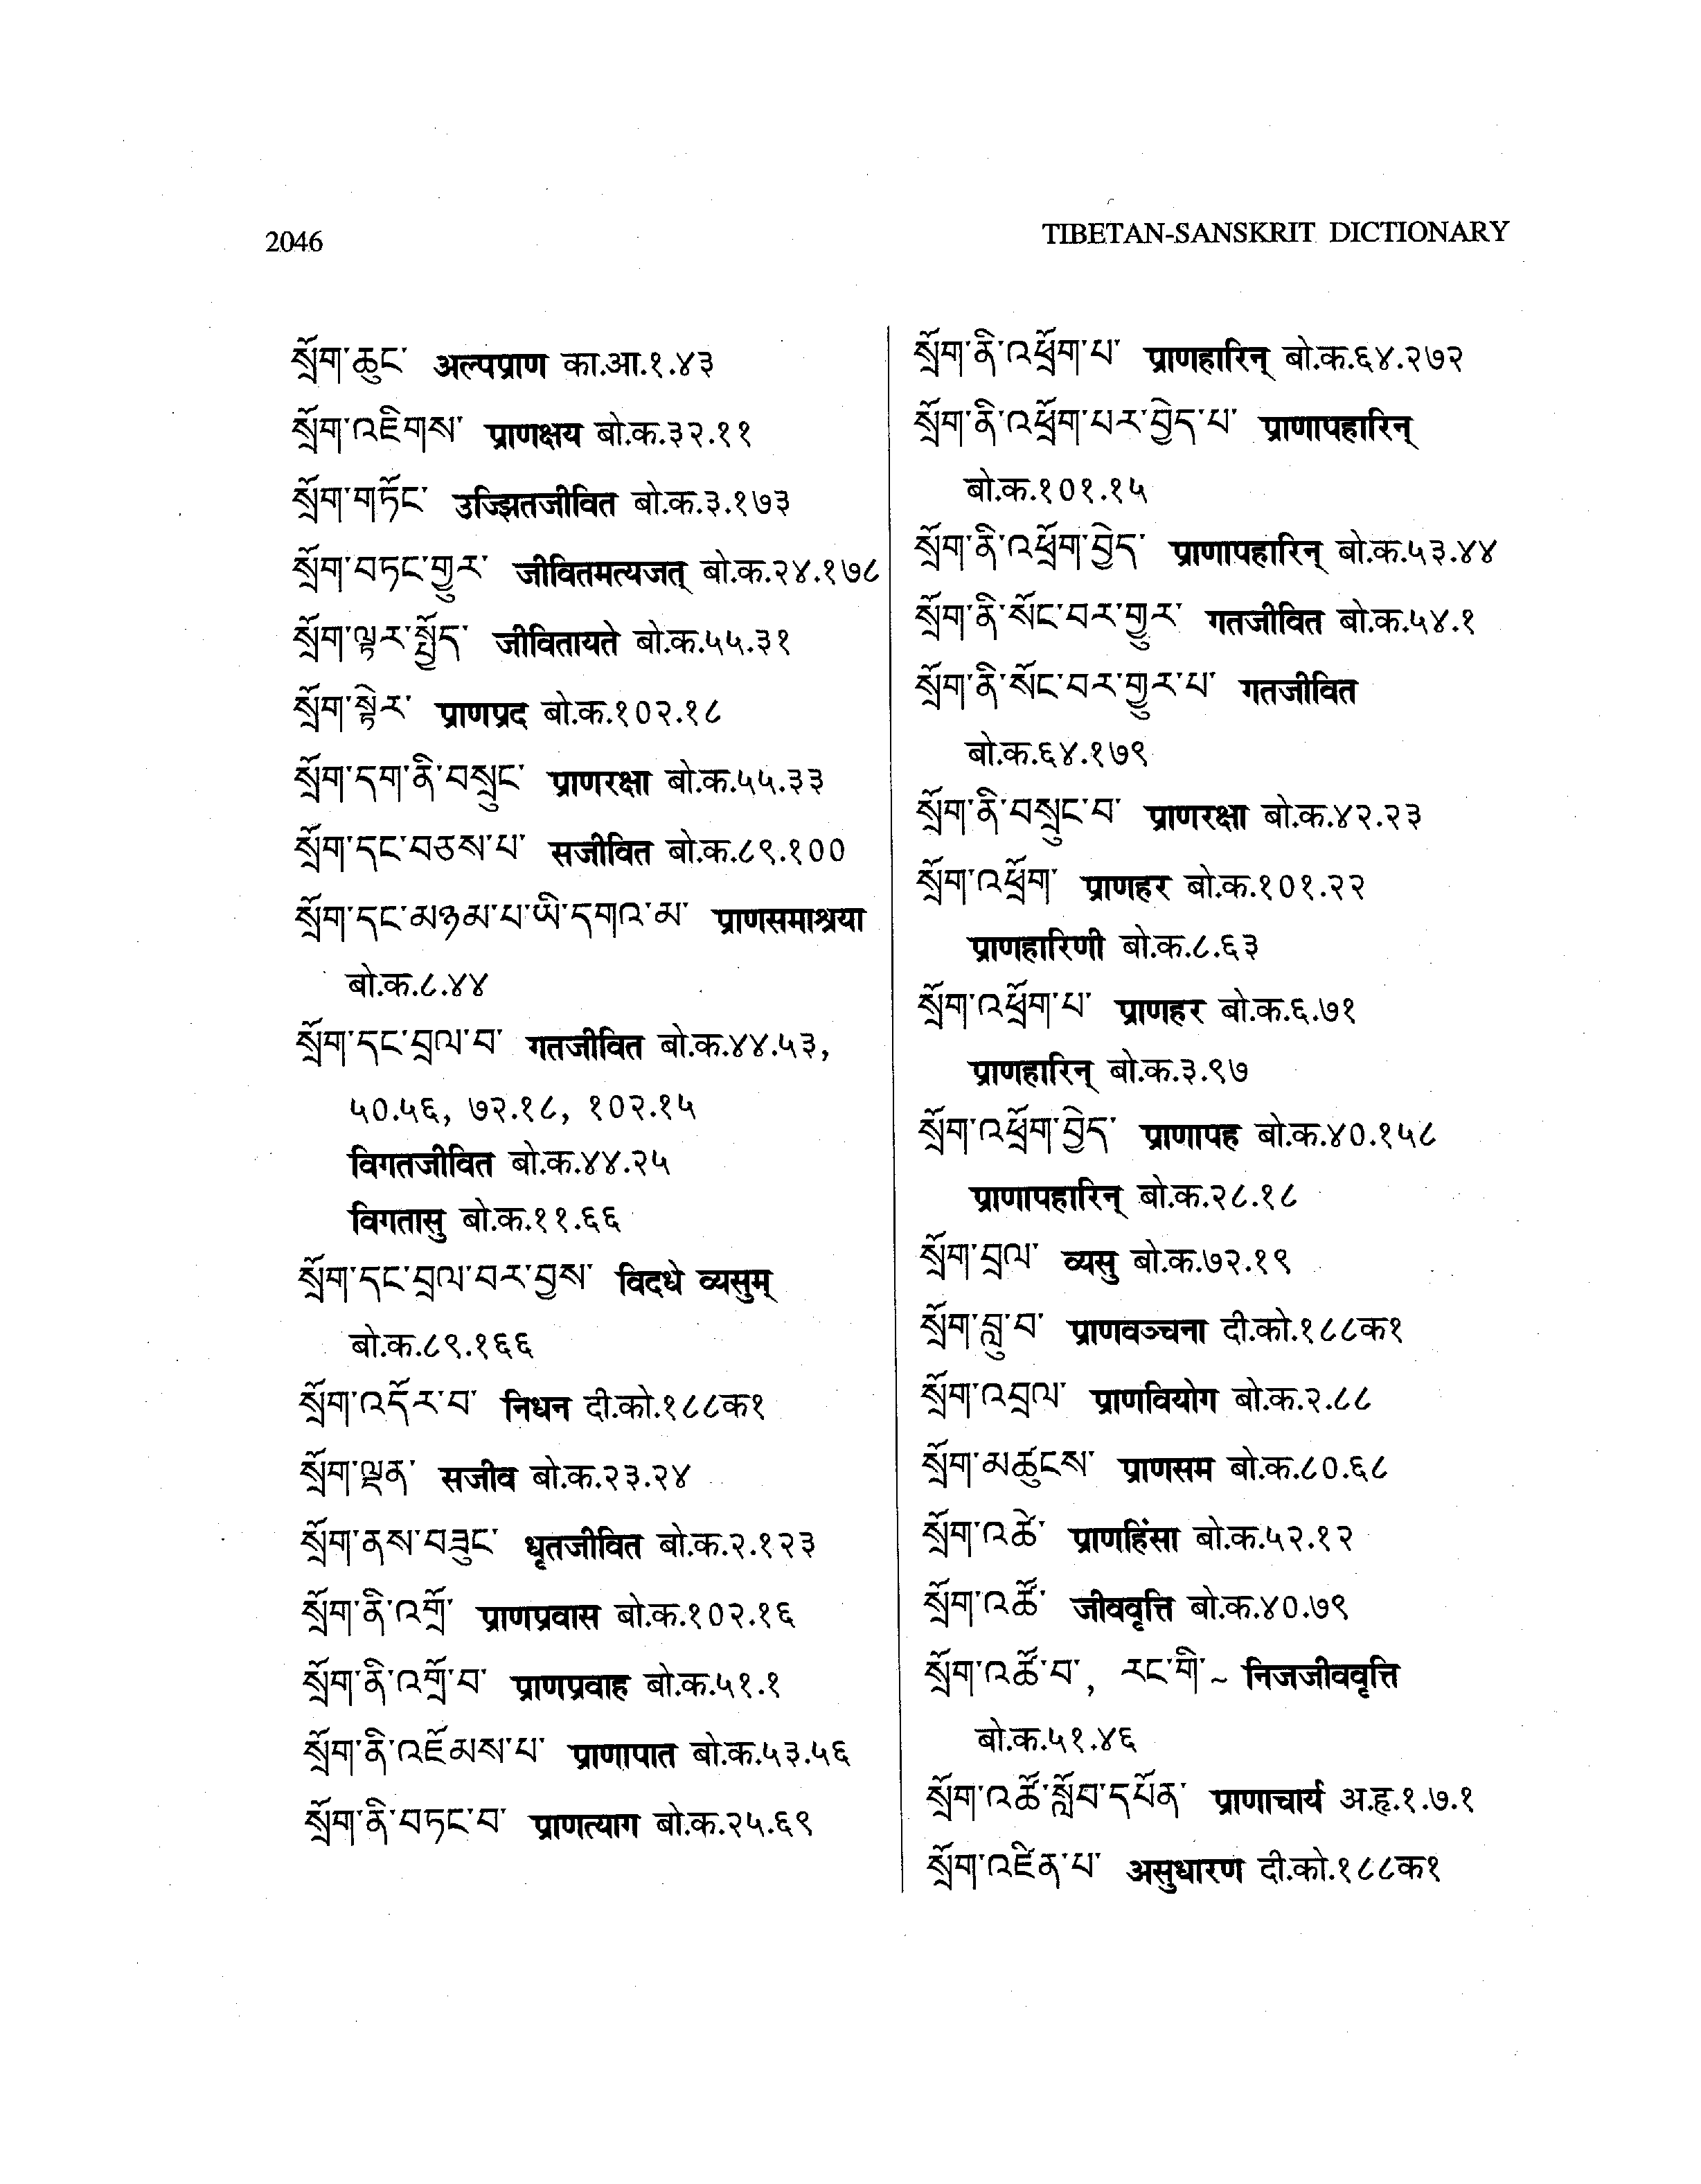 2046
TIBETAN-SANSKRIT DICTIONARY
སྲོག་ཆུང་ अल्पप्राण का.आ.१.४३
སྲོག་འཇིགས་ प्राणक्षय बो.क.३२.११
སྲོག་གཏོང་ उज्झितजीवित बो.क.३.१७३
སྲོག་བཏང་གྱུར་ जीवितमत्यजत् बो.क.२४.१७८
སྲོག་ལྟར་སྤྱོད་ जीवितायते बो.क.५५.३१
སྲོག་སྟེར་ प्राणप्रद बो.क.१०२.१८
སྲོག་དག་ནི་བསྲུང་ प्राणरक्षा बो.क.५५.३३
སྲོག་དང་བཅས་པ་ सजीवित बो.क.८९.१००
སྲོག་དང་མཉམ་པ་ཡི་དགའ་མ་ प्राणसमाश्रया
बो.क.८.४४
སྲོག་དང་བྲལ་བ་ गतजीवित बो.क.४४.५३,
५०.५६, ७२.१८, १०२.१५
विगतजीवित बो.क.४४.२५
विगतासु बो.क.११.६६
སྲོག་དང་བྲལ་བར་བྱས་ विदधे व्यसुम्
बो.क.८९.१६६
སྲོག་འདོར་བ་ निधन दी.को.१८८क१
སྲོག་ལྡན་ सजीव बो.क.२३.२४
སྲོག་ནས་བཟུང་ धृतजीवित बो.क.२.१२३
སྲོག་ནི་འགྲོ་ प्राणप्रवास बो.क.१०२.१६
སྲོག་ནི་འགྲོ་བ་ प्राणप्रवाह बो.क.५१.१
སྲོག་ནི་འཇོམས་པ་ प्राणापात बो.क.५३.५६
སྲོག་ནི་བཏང་བ་ प्राणत्याग बो.क.२५.६९
སྲོག་ནི་འཕྲོག་པ་ प्राणहारिन् बो.क.६४.२७२
སྲོག་ནི་འཕྲོག་པར་བྱེད་པ་ प्राणापहारिन्
बो.क.१०१.१५
སྲོག་ནི་འཕྲོག་བྱེད་ प्राणापहारिन् बो.क.५३.४४
སྲོག་ནི་སོང་བར་གྱུར་ गतजीवित बो.क.५४.१
སྲོག་ནི་སོང་བར་གྱུར་པ་ गतजीवित
बो.क.६४.१७९
སྲོག་ནི་བསྲུང་བ་ प्राणरक्षा बो.क.४२.२३
སྲོག་འཕྲོག་ प्राणहर बो.क.१०१.२२
प्राणहारिणी बो.क.८.६३
སྲོག་འཕྲོག་པ་ प्राणहर बो.क.६.७१
प्राणहारिन् बो.क.३.९७
སྲོག་འཕྲོག་བྱེད་ प्राणापह बो.क.४०.१५८
प्राणापहारिन् बो.क.२८.१८
སྲོག་བྲལ་ व्यसु बो.क.७२.१९
སྲོག་བླུ་བ་ प्राणवञ्चना दी.को.१८८क१
སྲོག་འབྲལ་ प्राणवियोग बो.क.२.८८
སྲོག་མཚུངས་ प्राणसम बो.क.८०.६८
སྲོག་འཚེ་ प्राणहिंसा बो.क.५२.१२
སྲོག་འཚོ་ जीववृत्ति बो.क.४०.७९
སྲོག་འཚོ་བ་, རང་གི་~ निजजीववृत्ति
बो.क.५१.४६
སྲོག་འཚོ་སློབ་དཔོན་ प्राणाचार्य अ.हृ.१.७.१
སྲོག་འཛིན་པ་ असुधारण दी.को.१८८क१